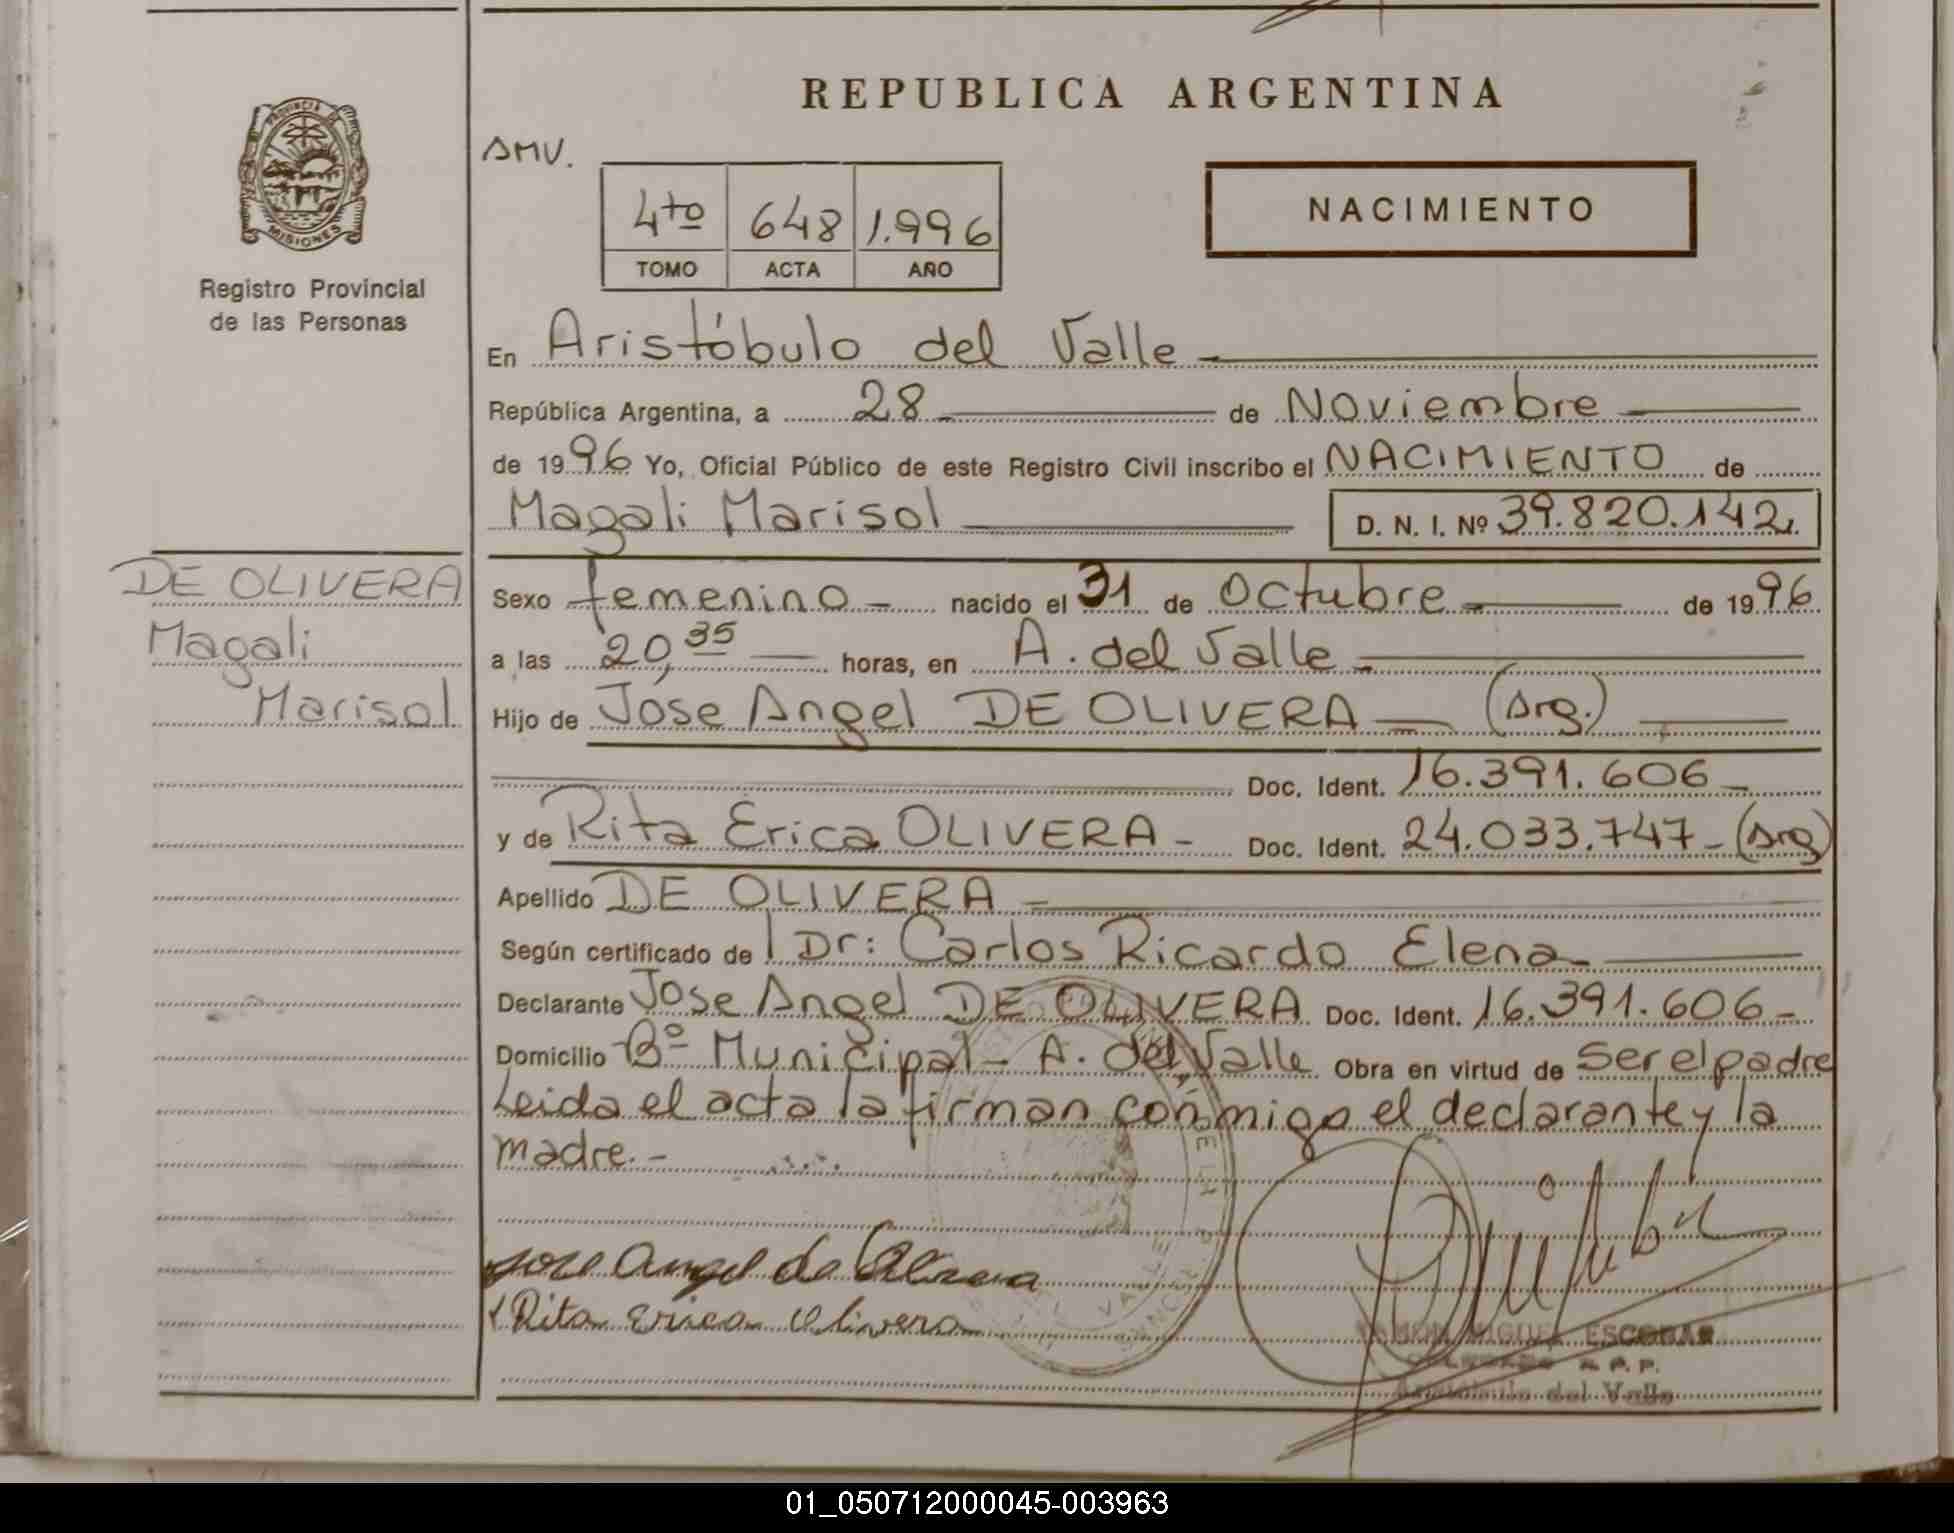 REPUBLICA ARGENTINA
PROVINCIA DE
MISIONES
Registro Provincial
de las Personas
AMV.
4to 648 1.996
TOMO ACTA AÑO
NACIMIENTO
En Aristóbulo del Valle
República Argentina, a 28 de Noviembre
de 1996 Yo, Oficial Público de este Registro Civil inscribo el NACIMIENTO de
Magali Marisol D. N. I. Nº 39.820.142.
DE OLIVERA
Magali
Marisol
Sexo femenino - nacido el 31 de Octubre de 1996
a las 20,35 horas, en A. del Valle
Hijo de Jose Angel DE OLIVERA (Arg.)
Doc. Ident. 16.391.606 -
y de Rita Erica OLIVERA - Doc. Ident. 24.033.747 - (Arg)
Apellido DE OLIVERA
Según certificado de Dr: Carlos Ricardo Elena
Declarante Jose Angel DE OLIVERA Doc. Ident. 16.391.606 -
Domicilio Bº Municipal - A. del Valle Obra en virtud de ser el padre
Leida el acta la firman conmigo el declarante y la
madre. -
Jose Angel de Olivera
Rita Erica Olivera
RAMON MIGUEL ESCOBAR
R. P. P.
Aristóbulo del Valle
01_050712000045-003963